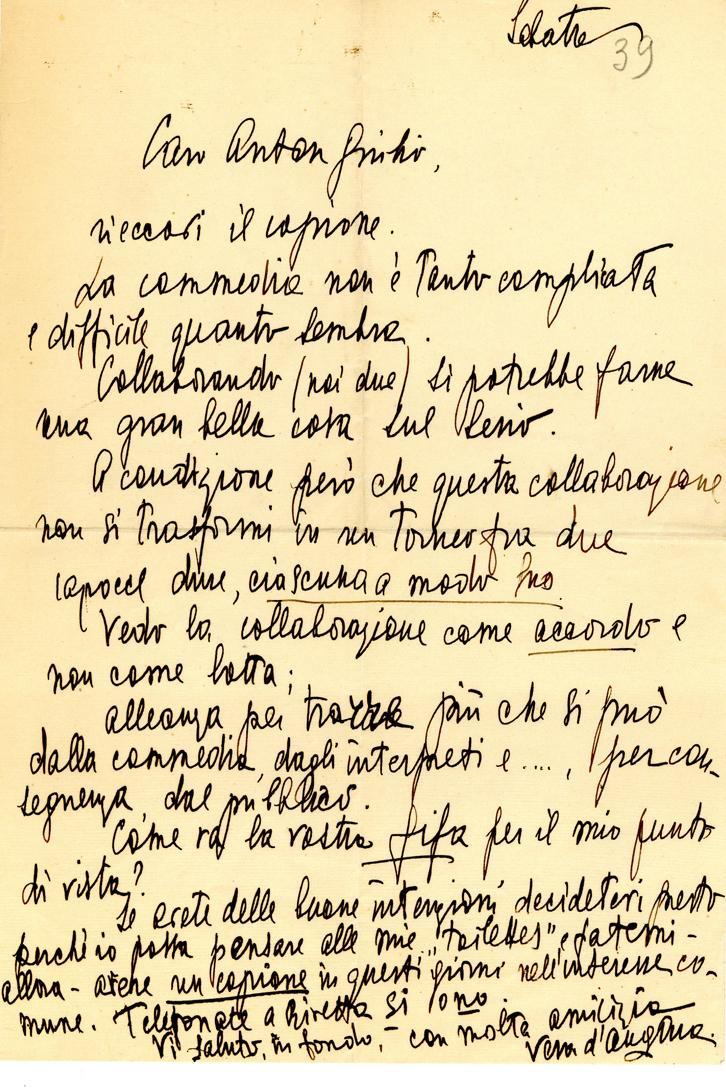 Sabato
39
Caro Anton Giulio,
rieccovi il copione.
La commedia non è tanto complicata
e difficile quanto sembra.
Collaborando (noi due) si potrebbe farne
una gran bella cosa sul serio.
A condizione però che questa collaborazione
non si trasformi in un torneo fra due
capocce dure, ciascuna a modo suo
Vedo la collaborazione come accordo e
non come lotta;
alleanza per trarre più che si può
dalla commedia, dagli interpreti e ...., per con-
seguenza, dal pubblico.
Come va la vostra fifa per il mio punto
di vista?
Se avete delle buone intenzioni decidetevi presto
perchè io possa pensare alle mie "toilettes", e fatemi -
allora - avere un copione in questi giorni nell'interesse co-
mune. Telefonate a si o no.
Vi saluto, in fondo, - con molta amicizia
Vera d'Angara.